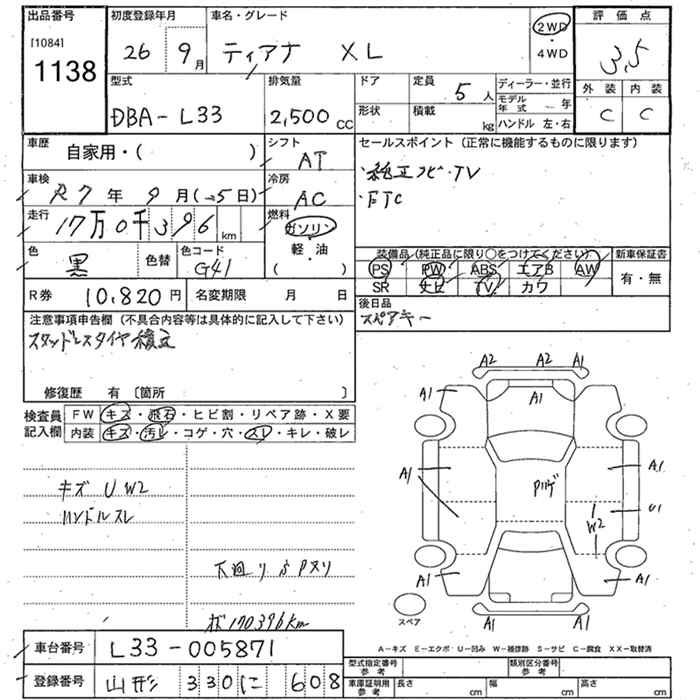 出品番号
[1084]
1138
初度登録年月
26 9月
車名・グレード
ティアナ XL
2WD
・
4WD
評価点
3.5
外装 内装
C C
型式
DBA-L33
排気量
2,500cc
ドア
形状
定員
5人
積載
kg
ディーラー・並行
モデル年式 年
ハンドル 左・右
車歴
自家用・( )
シフト
AT
車検
R7年 9月(→5日)
冷房
AC
走行
17万0千396km
燃料
ガソリン
・
軽・油
( )
色
黒
色替
色コード
G41
R券 10,820円
名変期限 月 日
セールスポイント (正常に機能するものに限ります)
・純正ナビ・TV
・ETC
装備品(純正品に限り○をつけてください)
PS PW ABS エアB AW
SR ナビ TV カワ
新車保証書
有・無
後日品
スペアキー
注意事項申告欄 (不具合内容等は具体的に記入して下さい)
スタッドレスタイヤ積込
修復歴 有 〔箇所 〕
検査員記入欄
FW キズ・飛石・ヒビ割・リペア跡・X要
内装 キズ・汚レ・コゲ・穴・スレ・キレ・破レ
キズ U W2
ハンドルスレ
下廻りS Pヌリ
170396km
A2 A2 A1
A1 A1 A1
A1 Pハゲ A1
U1
W2
A1 A1
A1 A1
スペア
A-キズ E-エクボ U-凹み W-補修跡 S-サビ C-腐食 XX-取替済
車台番号 L33-005871
登録番号 山形 330 に 608
型式指定番号 参考
類別区分番号 参考
車庫証明用 参考
長さ cm 幅 cm 高さ cm